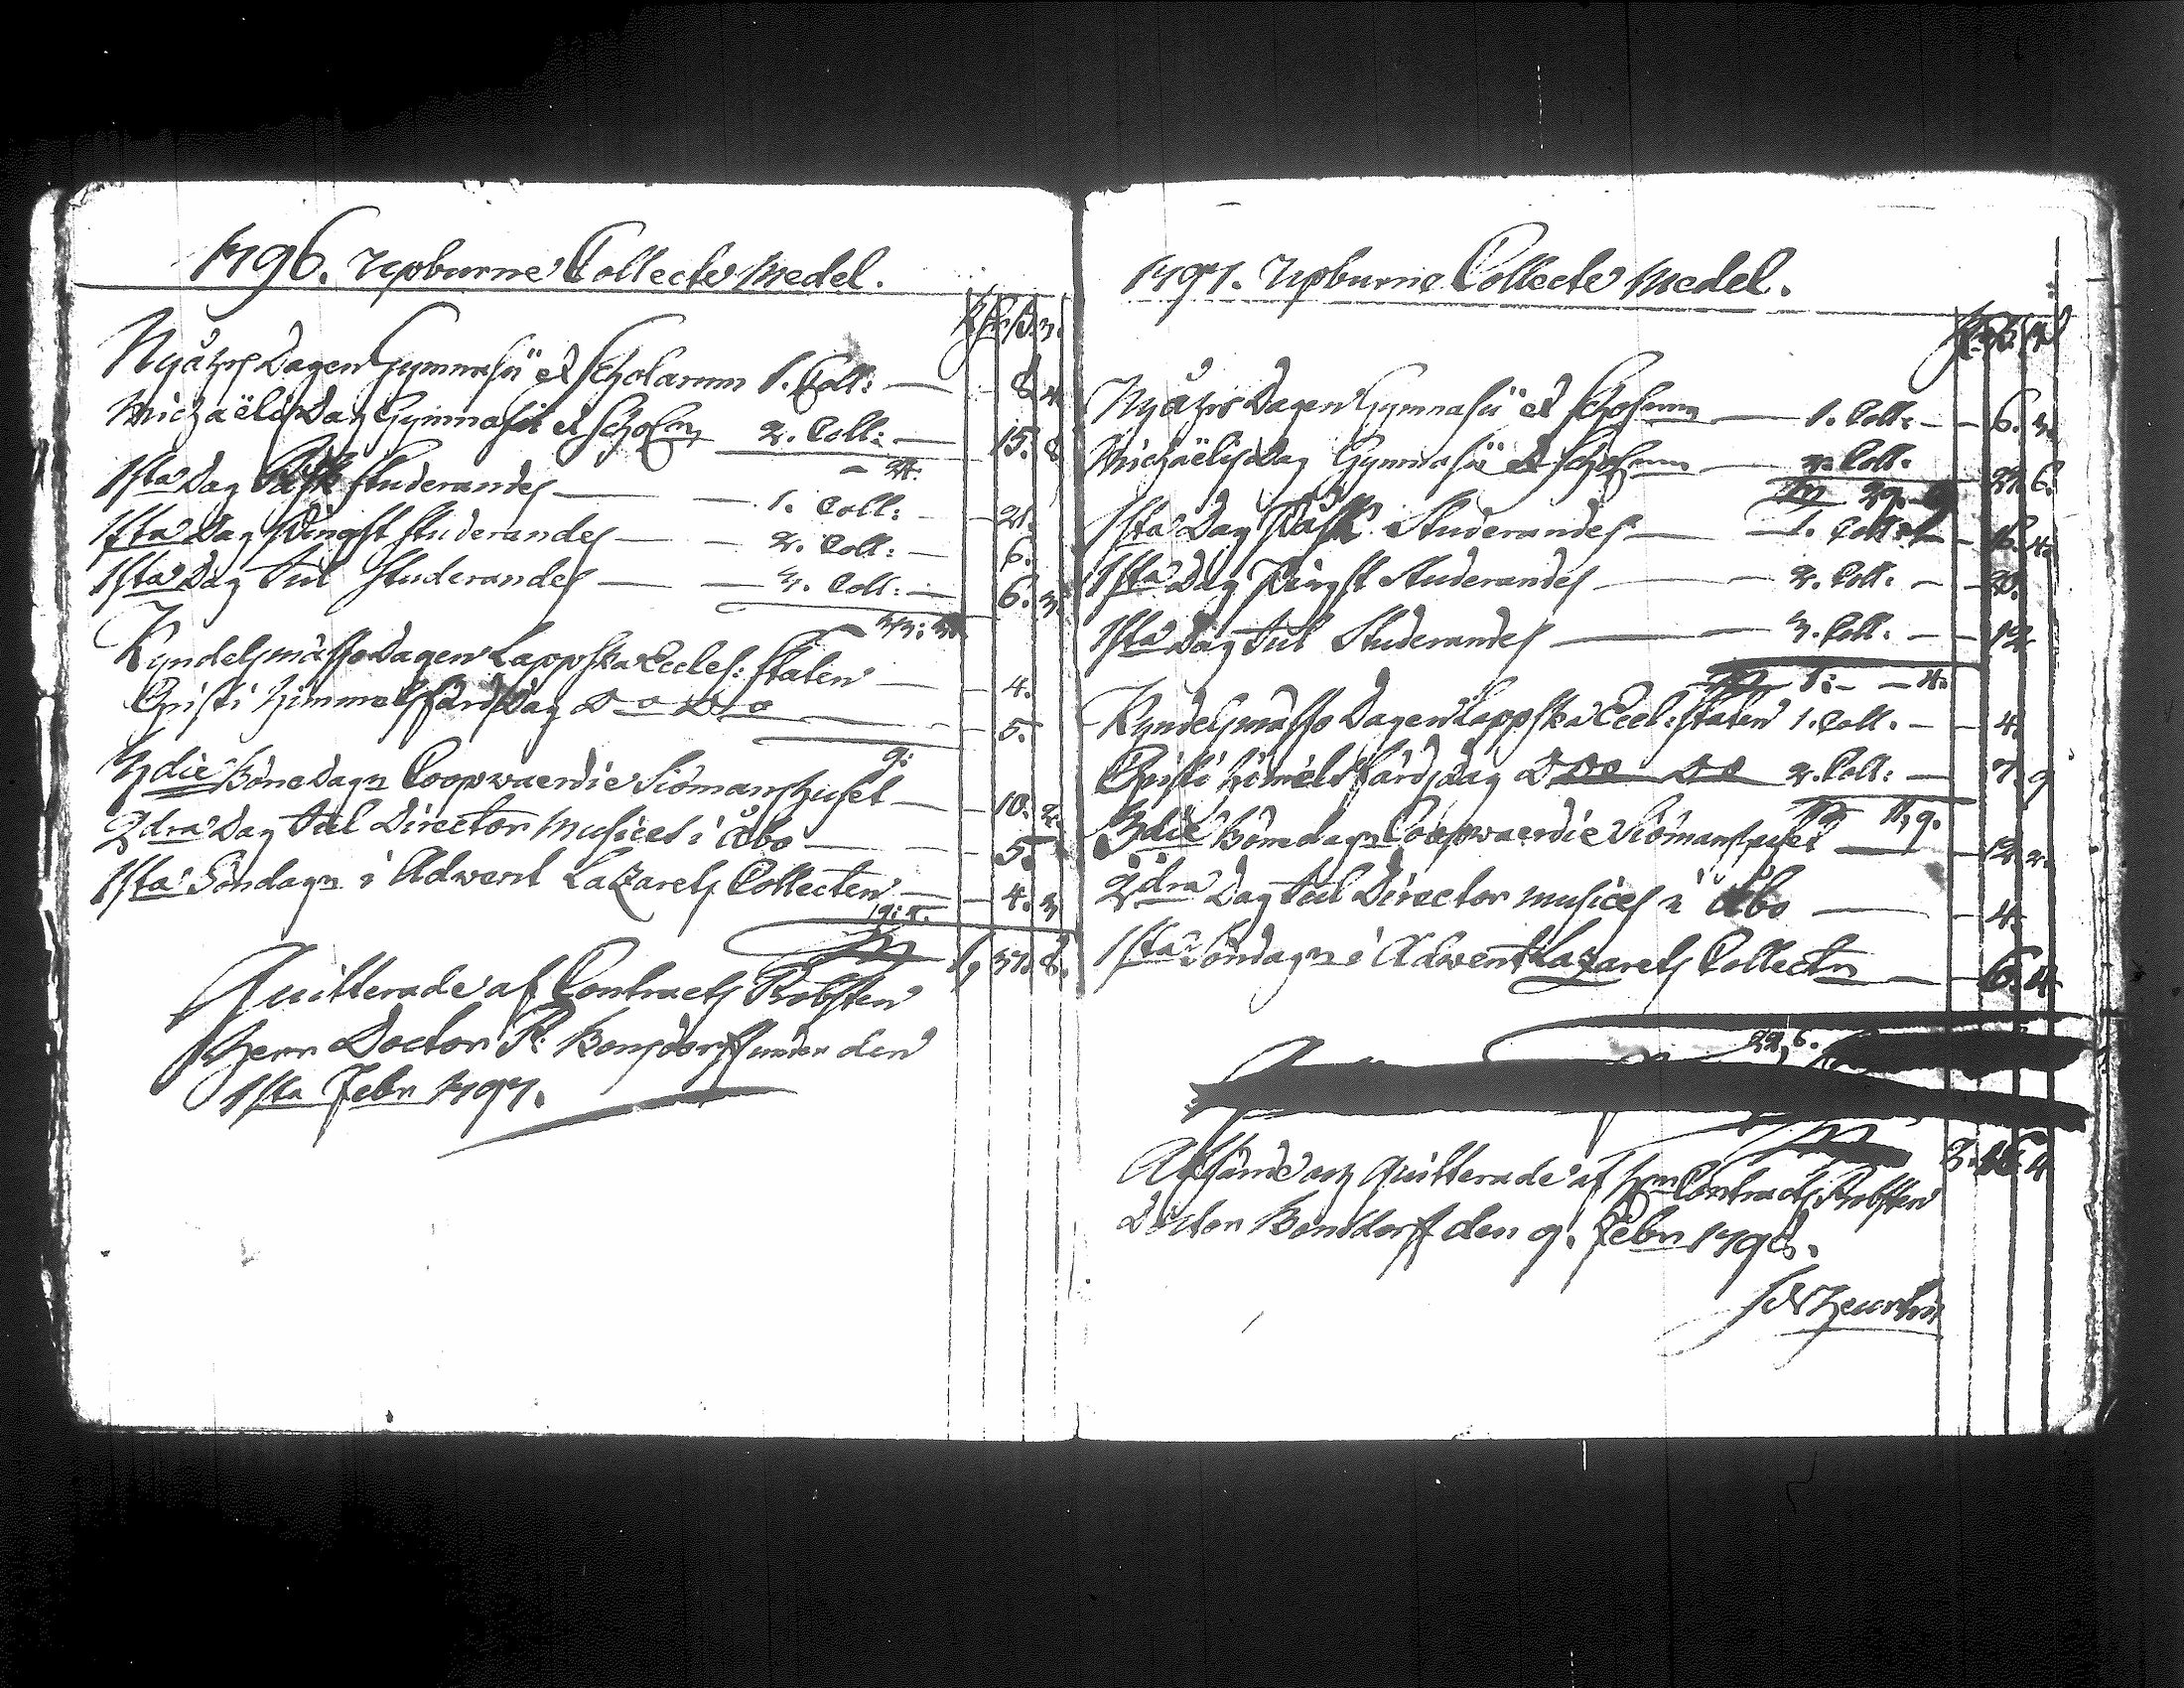 1796. Upburne Collecte Medel.
Nyåhrs Dagen Gymnasii et Scholarum 1. Coll: 8. 4.
Michaëlis Dag Gymnasii et Schol 2. Coll: 15. 8
24.
1sta Dag Påsk Studerandes 1. Coll: 21.
1sta Dag Pingst Studerandes 2. Coll: 6.
1sta Dag Jul Studerandes 3. Coll: 6. 3.
33: 3.
Kyndelsmässo Dagen Lappska Eccles: Staten 4.
Christi Himmelsfärds Dag Do Do 5.
9:
3die Bönedagn Coopvaerdie Siömanshuset 10. 2.
2dra Dag Jul Director Musices i Åbo 5.
1sta Söndagn i Adwent Lazarets Collecten 4. 3
19: 5.
37. 8.
Quitterade af Contracts Probsten
Herr Doctor P: Bonsdorff under den
1sta Febr 1797.
1797. Upburne Collecte Medel.
Nyåhrs Dagen Gymnasii et Scholarum 1. Coll: 6. 3.
Michaëlis Dag Gymnasii et Scholarum 2. Coll. 6.
29. 9
1sta Dag Påsk Studerandes 1. Coll: 4.
1sta Dag Pingst Studerandes 2. Coll: 20.
1sta Dag Jul Studerandes 3. Coll. 12
1: - 4.
Kyndelsmässo Dagen Lappska Eccl: Staten 1. Coll. 4.
Christi Himelsfärds Dag Do Do 2. Coll: 7. 9
11, 9.
3die Bönedagn Coopvaerdie Siömanshuset 12. 2.
2dra Dag Jul Director Musices i Åbo 4.
1sta Söndagn i Adwent Lazarets Collectn 6. 4
22, 6.
Afsände och Quitterade af Hrn Contracts Probsten
Doctor Bonsdorff den 9. Febr 1798.